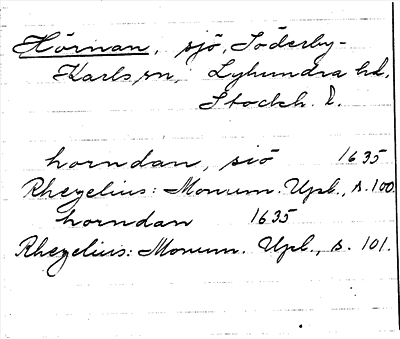 Hörnan, sjö, Söderby-
Karls sn, Lyhundra hd,
Stockh. l.
horndan, siö 1635
Rhezelius: Monum. Upl., s. 100.
horndan 1635
Rhezelius: Monum. Upl., s. 101.